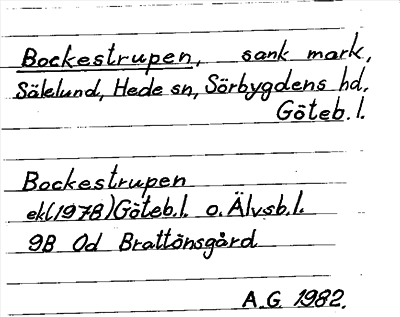 Bockestrupen, sank mark,
Sälelund, Hede sn, Sörbygdens hd.
Göteb. l.
Bockestrupen
ekl(1978)Göteb.l. o. Älvsb.l.
9B 0d Brattönsgård
A.G. 1982.